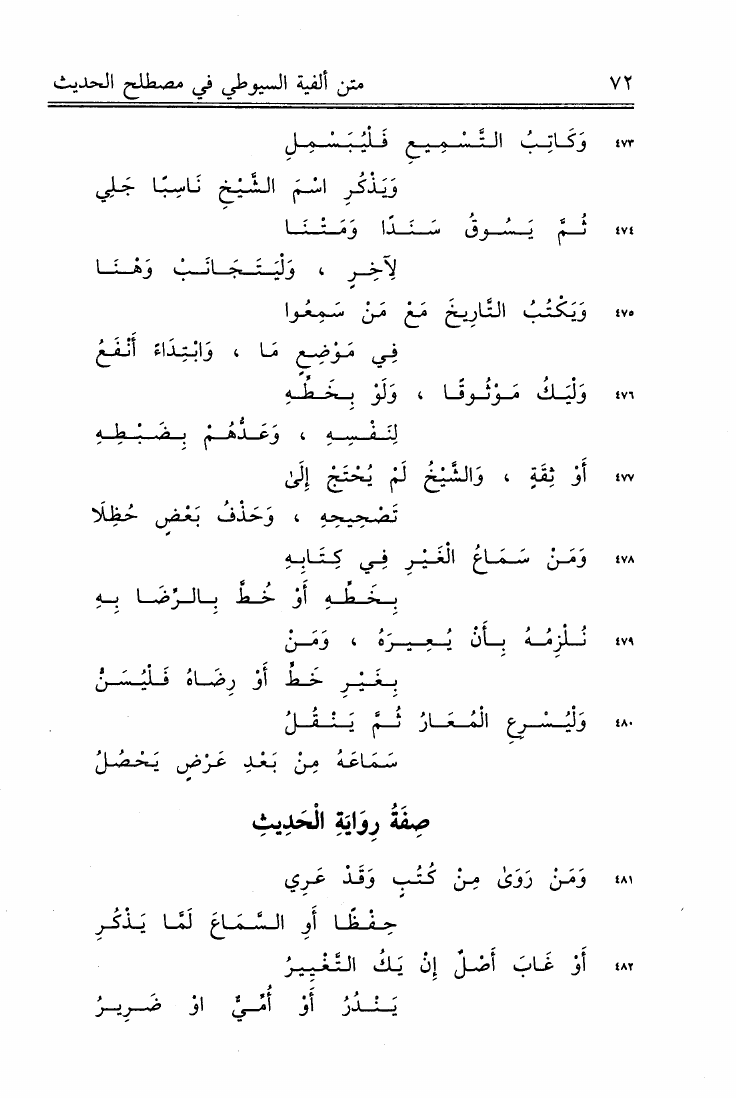 ٧٢ متن ألفية السيوطي في مصطلح الحديث
٤٧٣ وَكَاتِبُ التَّسْمِيعِ فَلْيُبَسْمِلِ
وَيَذْكُرِ اسْمَ الشَّيْخِ نَاسِبًا جَلِي
٤٧٤ ثُمَّ يَسُوقُ سَنَدًا وَمَتْنَا
لِآخِرٍ ، وَلْيَتَجَانَبْ وَهْنَا
٤٧٥ وَيَكْتُبُ التَّارِيخَ مَعْ مَنْ سَمِعُوا
فِي مَوْضِعٍ مَا ، وَابْتِدَاءً أَنْفَعُ
٤٧٦ وَلْيَكُ مَوْثُوقًا ، وَلَوْ بِخَطِّهِ
لِنَفْسِهِ ، وَعَدُّهُمْ بِضَبْطِهِ
٤٧٧ أَوْ ثِقَةٍ ، وَالشَّيْخُ لَمْ يُحْتَجْ إِلَىٰ
تَصْحِيحِهِ ، وَحَذْفُ بَعْضٍ حُظِلَا
٤٧٨ وَمَنْ سَمَاعُ الْغَيْرِ فِي كِتَابِهِ
بِخَطِّهِ أَوْ خُطَّ بِالرِّضَا بِهِ
٤٧٩ نُلْزِمُهُ بِأَنْ يُعِيرَهُ ، وَمَنْ
بِغَيْرِ خَطٍّ أَوْ رِضَاهُ فَلْيُسَنْ
٤٨٠ وَلْيُسْرِعِ الْمُعَارُ ثُمَّ يَنْقُلُ
سَمَاعَهُ مِنْ بَعْدِ عَرْضٍ يَحْصُلُ
صِفَةُ رِوَايَةِ الْحَدِيثِ
٤٨١ وَمَنْ رَوَىٰ مِنْ كُتُبٍ وَقَدْ عَرِي
حِفْظًا أَوِ السَّمَاعَ لَمَّا يَذْكُرِ
٤٨٢ أَوْ غَابَ أَصْلٌ إِنْ يَكُ التَّغْيِيرُ
يَنْدُرُ أَوْ أُمِّيٌّ اوْ ضَرِيرُ